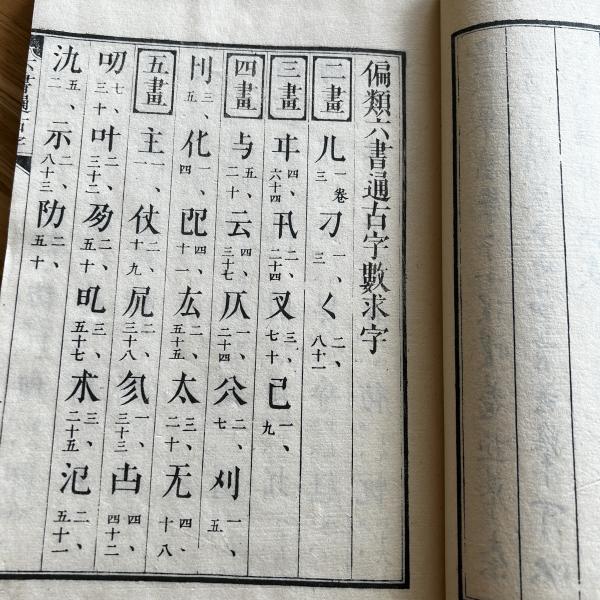 偏類六書通古字數求字
二畫 儿 一卷 三 刁 一、三 く 二、八十一
三畫 㐄 四、六十四 卂 二、二十四 叉 三、七十 己 一、九
四畫 与 五、二十 云 四、三十七 仄 一、二十四 公 二、七 刈 一、五
三、五 化 一、四 四、十一 厷 二、五十五 太 三、二十 无 四、十八
五畫 主 一、一 仗 二、十九 凥 二、三十八 一、三十三 四、四十二
叨 七、三十 叶 二、三十二 二、五十 三、五十七 朮 三、二十五 氾 二、五十一
氿 五、二 示 二、八十三 阞 二、五十
六書通古字